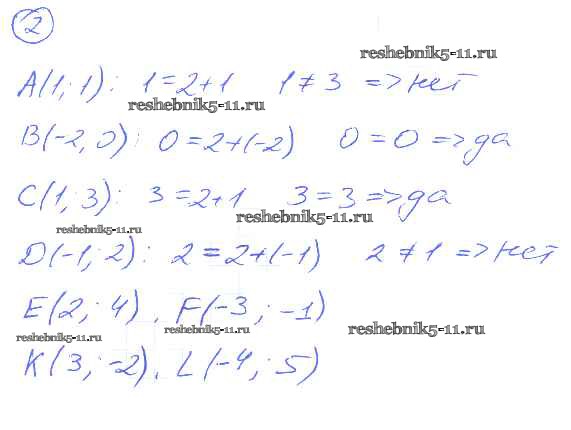 2
reshebnik5-11.ru
A(1; 1): 1=2+1 1≠3 => нет
reshebnik5-11.ru
B(-2; 0): 0=2+(-2) 0=0 => да
C(1; 3): 3=2+1 3=3 => да
reshebnik5-11.ru
reshebnik5-11.ru
D(-1; 2): 2=2+(-1) 2≠1 => нет
E(2; 4), F(-3; -1)
reshebnik5-11.ru reshebnik5-11.ru reshebnik5-11.ru
K(3; -2), L(-4; 5)